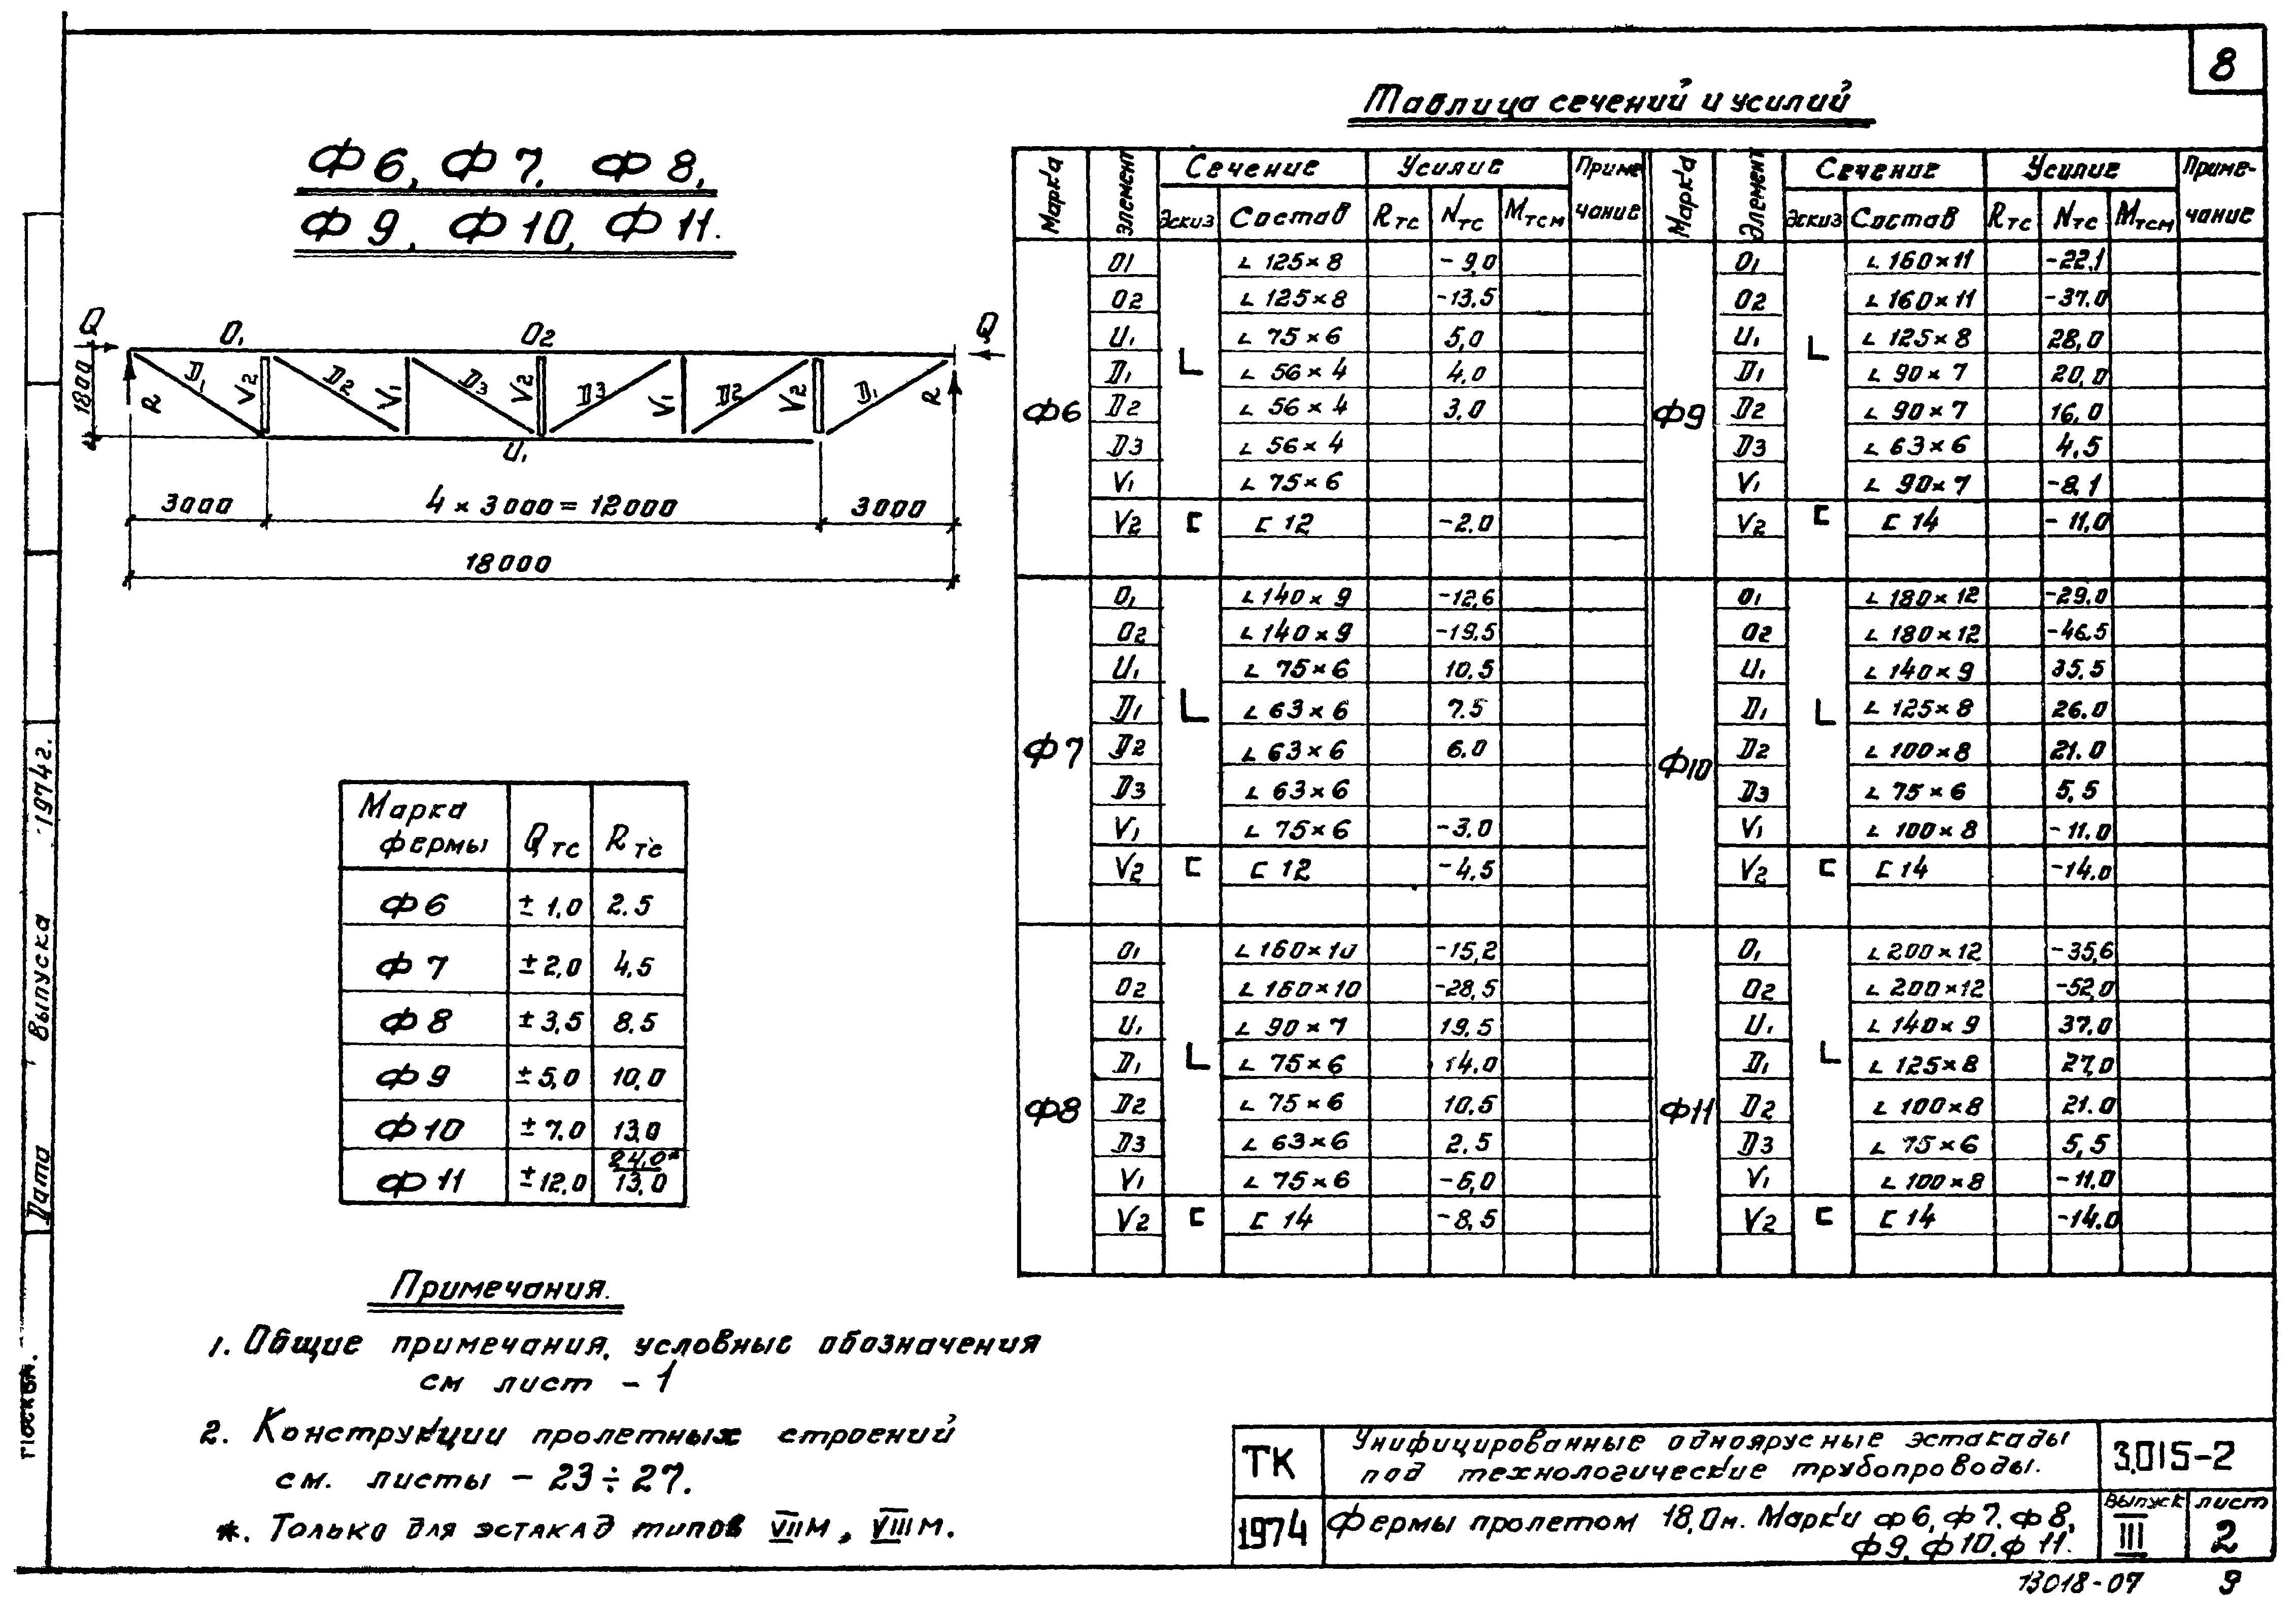 8
Таблица сечений и усилий
Ф6, Ф7, Ф8,
Ф9, Ф10, Ф11.
Q O₁ O₂ Q
1800 R D₁ V2 D2 V₁ D3 V2 D3 V₁ D2 V2 D₁ R
U₁
3000 4 × 3000 = 12000 3000
18000
Марка фермы Qтс Rтс
Ф6 ± 1,0 2.5
Ф7 ± 2,0 4,5
Ф8 ± 3,5 8.5
Ф9 ± 5,0 10,0
Ф10 ± 7.0 13,0
Ф11 ± 12,0 24,0* 13,0
Марка Элемент Сечение Усилие Примечание
Эскиз Состав Rтс Nтс Mтсм
Ф6
O1 L 125×8 -9,0
O2 L 125×8 -13,5
U₁ L 75×6 5,0
D₁ L 56×4 4.0
D2 L 56×4 3.0
D3 L 56×4
V₁ L 75×6
V2 С 12 -2.0
Ф7
O₁ L 140×9 -12,6
O2 L 140×9 -19.5
U₁ L 75×6 10.5
D₁ L 63×6 7.5
D2 L 63×6 6.0
D3 L 63×6
V₁ L 75×6 -3.0
V2 С 12 -4,5
Ф8
O₁ L 160×10 -15,2
O2 L 160×10 -28,5
U₁ L 90×7 19.5
D₁ L 75×6 14.0
D2 L 75×6 10.5
D3 L 63×6 2.5
V₁ L 75×6 -6,0
V2 С 14 -8,5
Марка Элемент Сечение Усилие Примечание
Эскиз Состав Rтс Nтс Mтсм
Ф9
O₁ L 160×11 -22,1
O2 L 160×11 -37.0
U₁ L 125×8 28,0
D₁ L 90×7 20,0
D2 L 90×7 16,0
D3 L 63×6 4,5
V₁ L 90×7 -8,1
V2 С 14 -11,0
Ф10
O₁ L 180×12 -29.0
O2 L 180×12 -46.5
U₁ L 140×9 35.5
D₁ L 125×8 26.0
D2 L 100×8 21.0
D3 L 75×6 5,5
V₁ L 100×8 -11.0
V2 С 14 -14,0
Ф11
O₁ L 200×12 -35,6
O2 L 200×12 -52,0
U₁ L 140×9 37.0
D₁ L 125×8 27,0
D2 L 100×8 21.0
D3 L 75×6 5,5
V₁ L 100×8 -11,0
V2 С 14 -14.0
Примечания.
1. Общие примечания, условные обозначения
см лист - 1
2. Конструкции пролетных строений
см. листы - 23÷27.
*. Только для эстакад типов VIIм, VIIIм.
Дата выпуска 1974г.
Москва.
ТК Унифицированные одноярусные эстакады
под технологические трубопроводы. 3.015-2
1974 Фермы пролетом 18,0м. Марки ф6, ф7, ф8,
ф9, ф10, ф11. выпуск III лист 2
13018-07 9